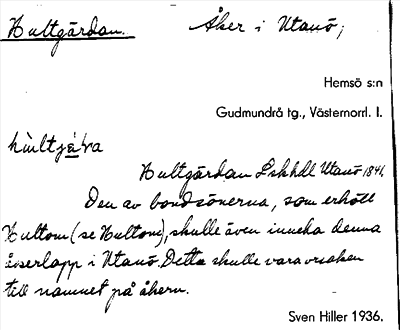 Hultgärdan. Åker i Utanö;
Hemsö s:n
Gudmundrå tg., Västernorrl. l.
Hultgärdan Lskhdl Utanö 1841.
Den av bondsönerna, som erhöll
Hultom (se Hultom), skulle även inneha denna
åkerlapp i Utanö. Detta skulle vara orsaken
till namnet på åkern.
Sven Hiller 1936.